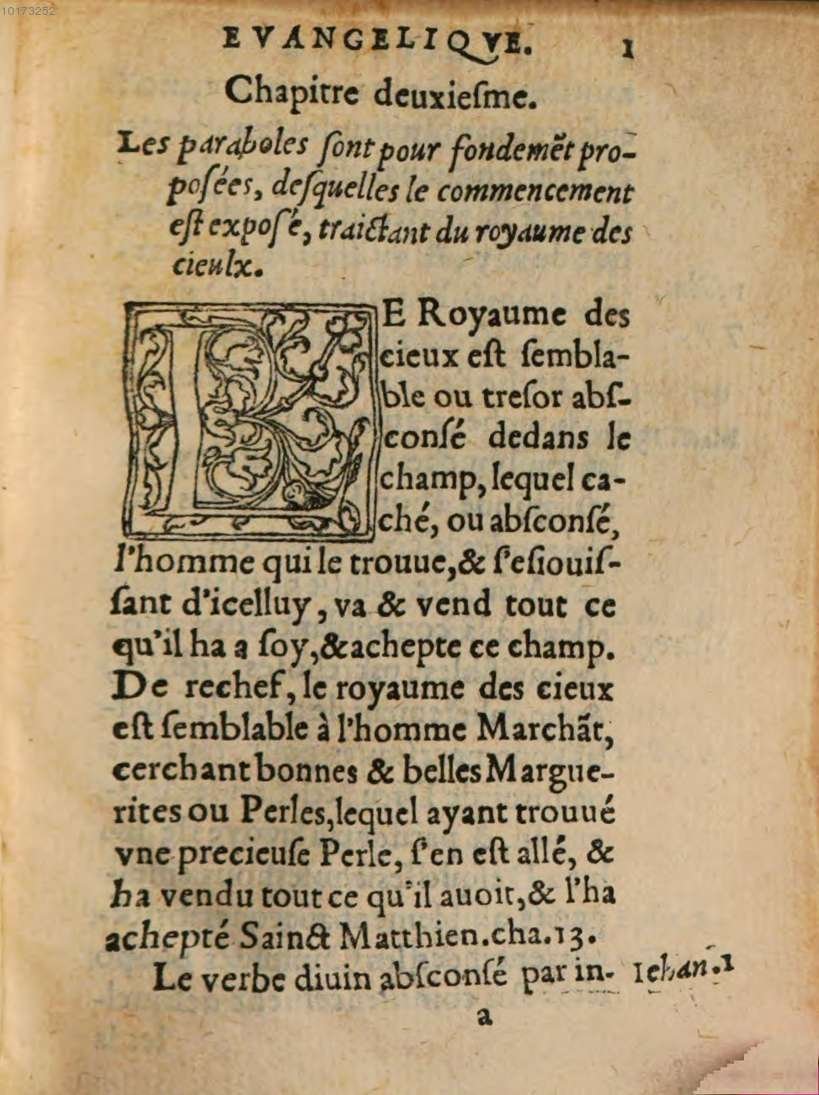 10173252
EVANGELIQVE. 1
Chapitre deuxieſme.
Les paraboles ſont pour fondemẽt pro-
poſées, deſquelles le commencement
eſt expoſé, traictant du royaume des
cieulx.
LE Royaume des
cieux eſt ſembla-
ble ou treſor abſ-
conſé dedans le
champ, lequel ca-
ché, ou abſconſé,
l'homme qui le trouue, & ſ'eſiouiſ-
ſant d'icelluy, va & vend tout ce
qu'il ha a ſoy, & achepte ce champ.
De rechef, le royaume des cieux
eſt ſemblable à l'homme Marchãt,
cerchant bonnes & belles Margue-
rites ou Perles, lequel ayant trouué
vne precieuſe Perle, ſ'en eſt allé, &
ha vendu tout ce qu'il auoit, & l'ha
achepté Sainct Matthien.cha.13.
Le verbe diuin abſconſé par in- Iehan.1
a